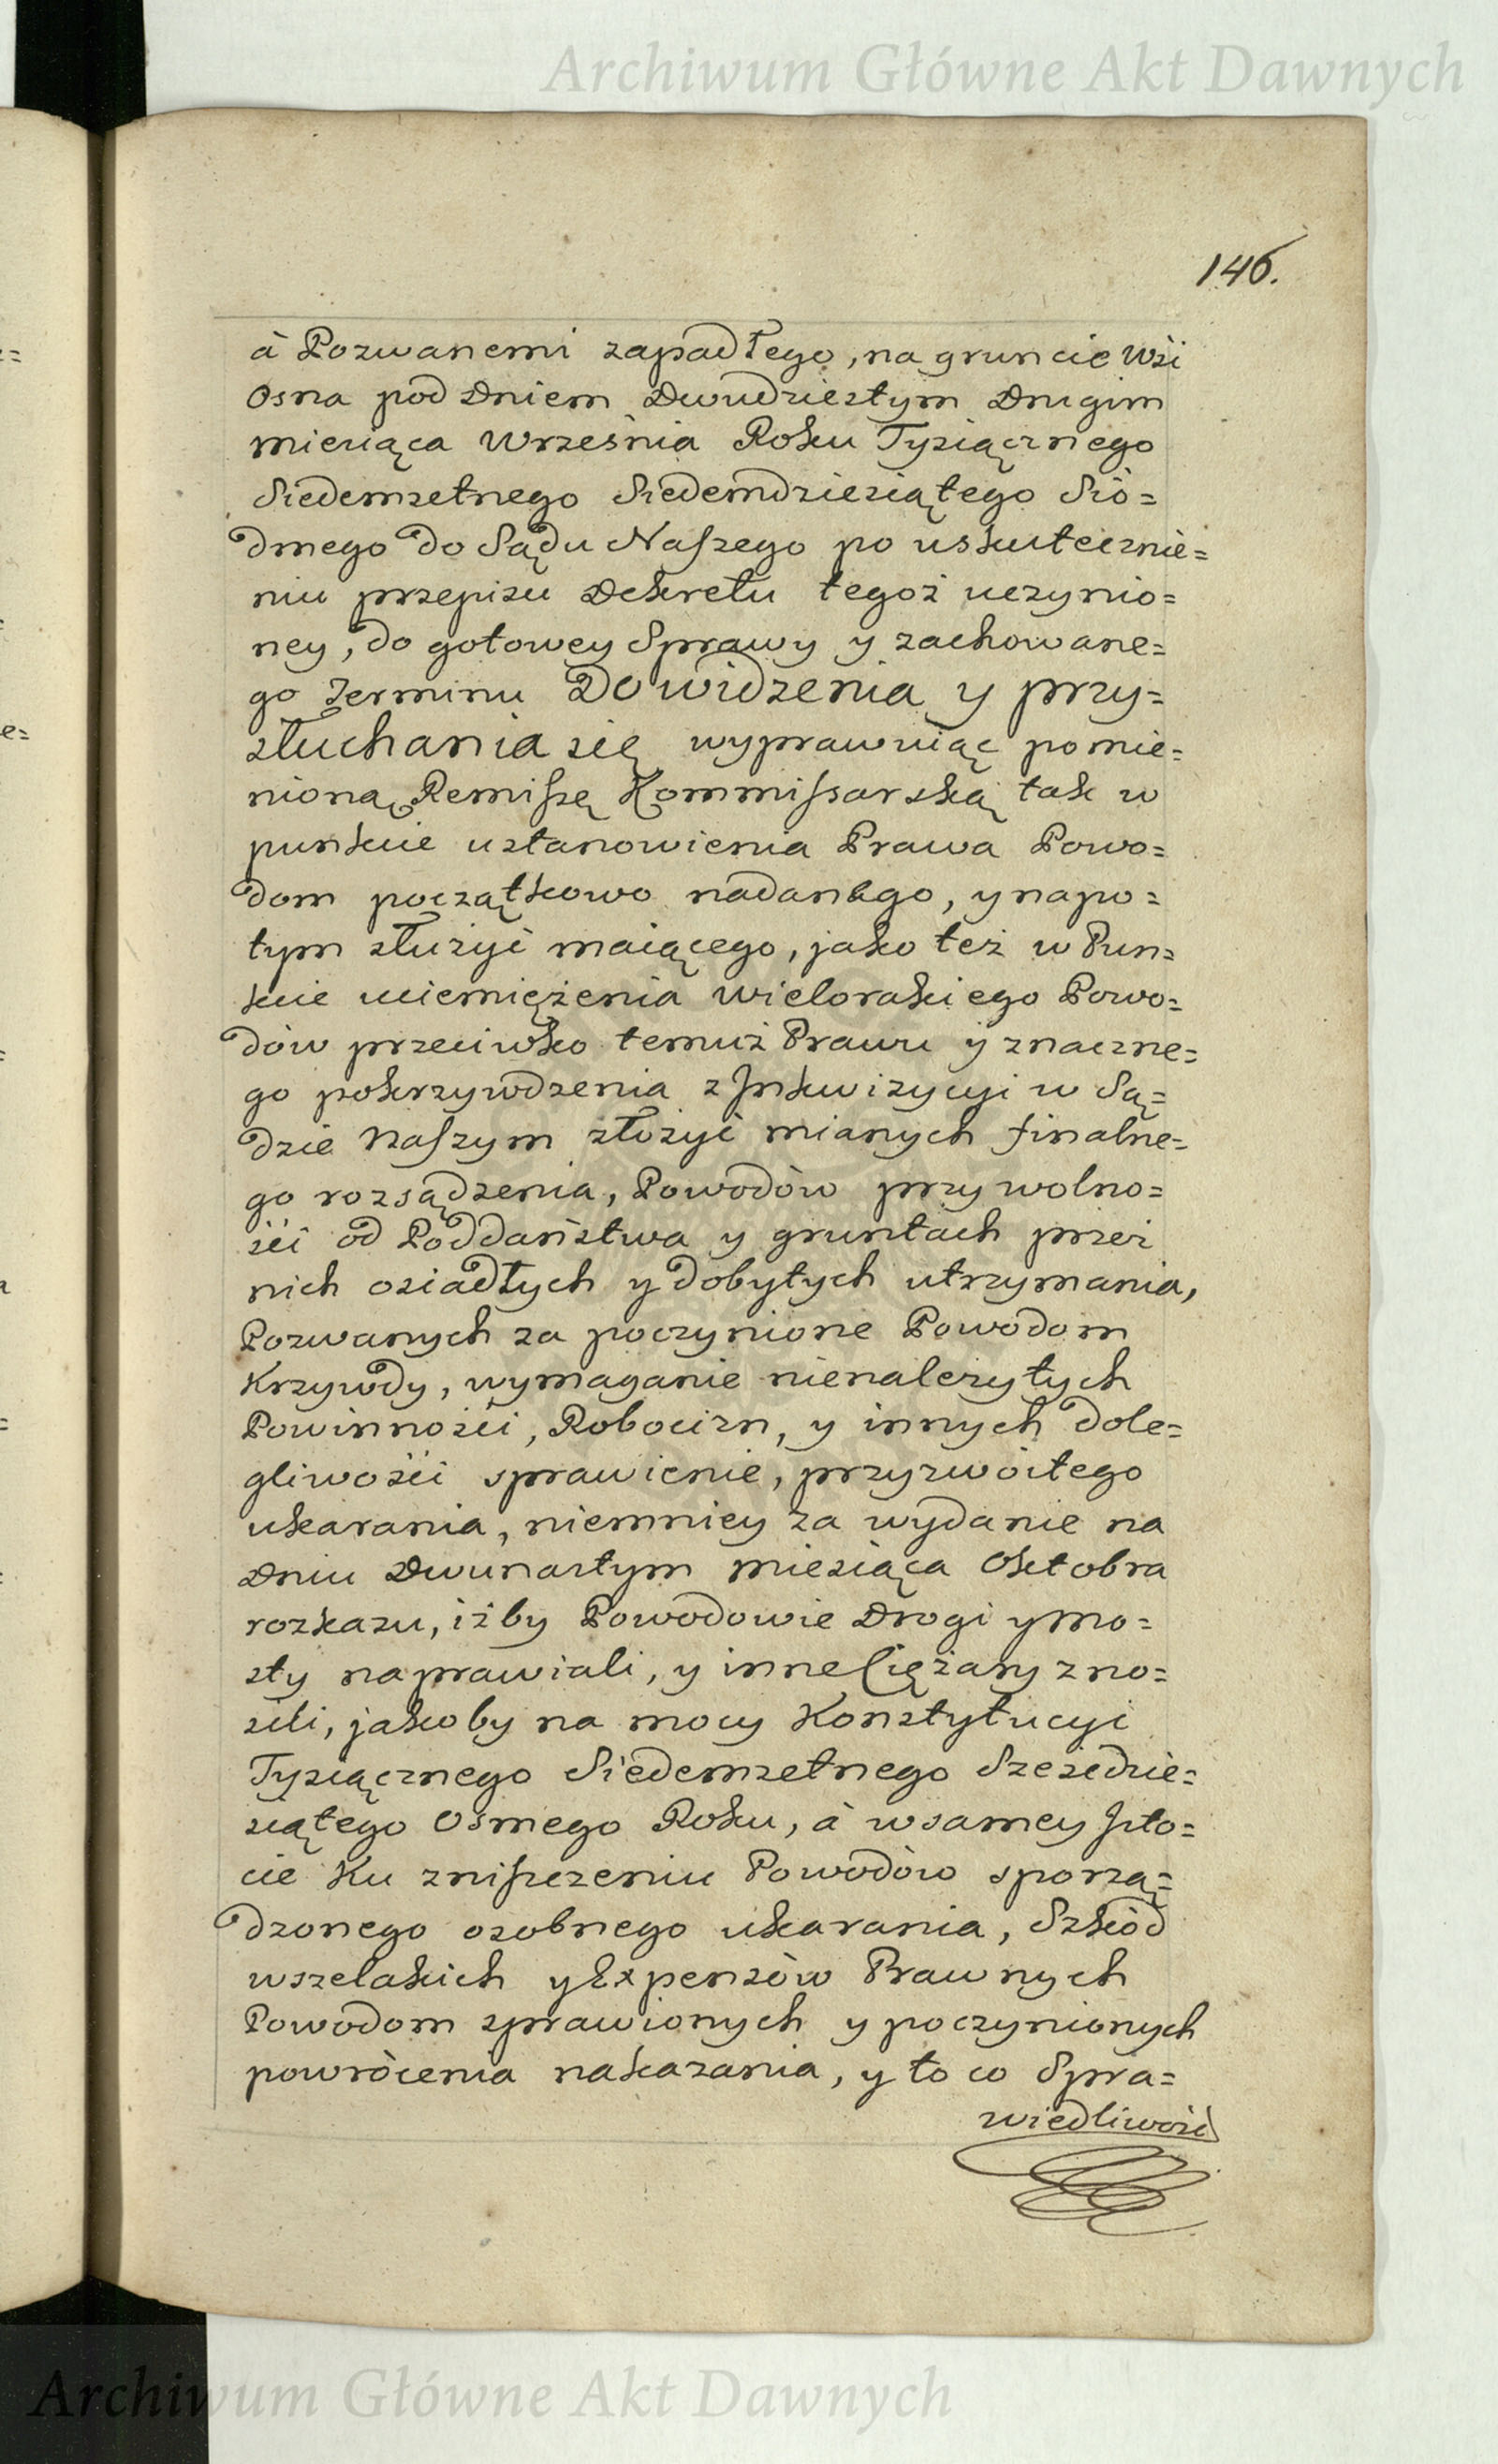 Archiwum Główne Akt Dawnych
146.
à Pozwanemi zapadłego, na gruncie Wsi
Osna pod Dniem Dwudziestym Drugim
miesiąca Września Roku Tysiącznego
Siedemsetnego Siedemdziesiątego Sió=
dmego do Sądu Naszego po uskutecznie=
niu przepisu Dekretu tegoż uczynio=
ney, do gotowey Sprawy y zachowane=
go Terminu Do widzenia y przy=
słuchania się wyprawuiąc pomie=
nioną Remissę Kommissarską tak w
punkcie ustanowienia Prawa Powo=
dom początkowo nadanego, y napo=
tym służyć maiącego, jako też w Pun=
kcie uciemiężenia wielorakiego Powo=
dów przeciwko temuż Prawu y znaczne=
go pokrzywdzenia z Inkwizycyi w Są=
dzie Naszym złożyć mianych finalne=
go rozsądzenia, Powodów przy wolno=
ści od Poddaństwa y gruntach przez
nich osiadłych y dobytych utrzymania,
Pozwanych za poczynione Powodom
Krzywdy, wymaganie nienależytych
Powinności, Robocizn, y innych dole=
gliwości sprawienie, przyzwoitego
ukarania, niemniey za wydanie na
Dniu Dwunastym miesiąca Oktobra
rozkazu, iżby Powodowie Drogi y mo=
sty naprawiali, y inne Ciężary zno=
sili, jakoby na mocy Konstytucyi
Tysiącznego Siedemsetnego Sześćdzie=
siątego Osmego Roku, à w samey Isto=
cie Ku zniszczeniu Powodów sporzą=
dzonego osobnego ukarania, Szkód
wszelakich y Expensów Prawnych
Powodom sprawionych y poczynionych
powrócenia nakazania, y to co Spra=
wiedliwość
Archiwum Główne Akt Dawnych